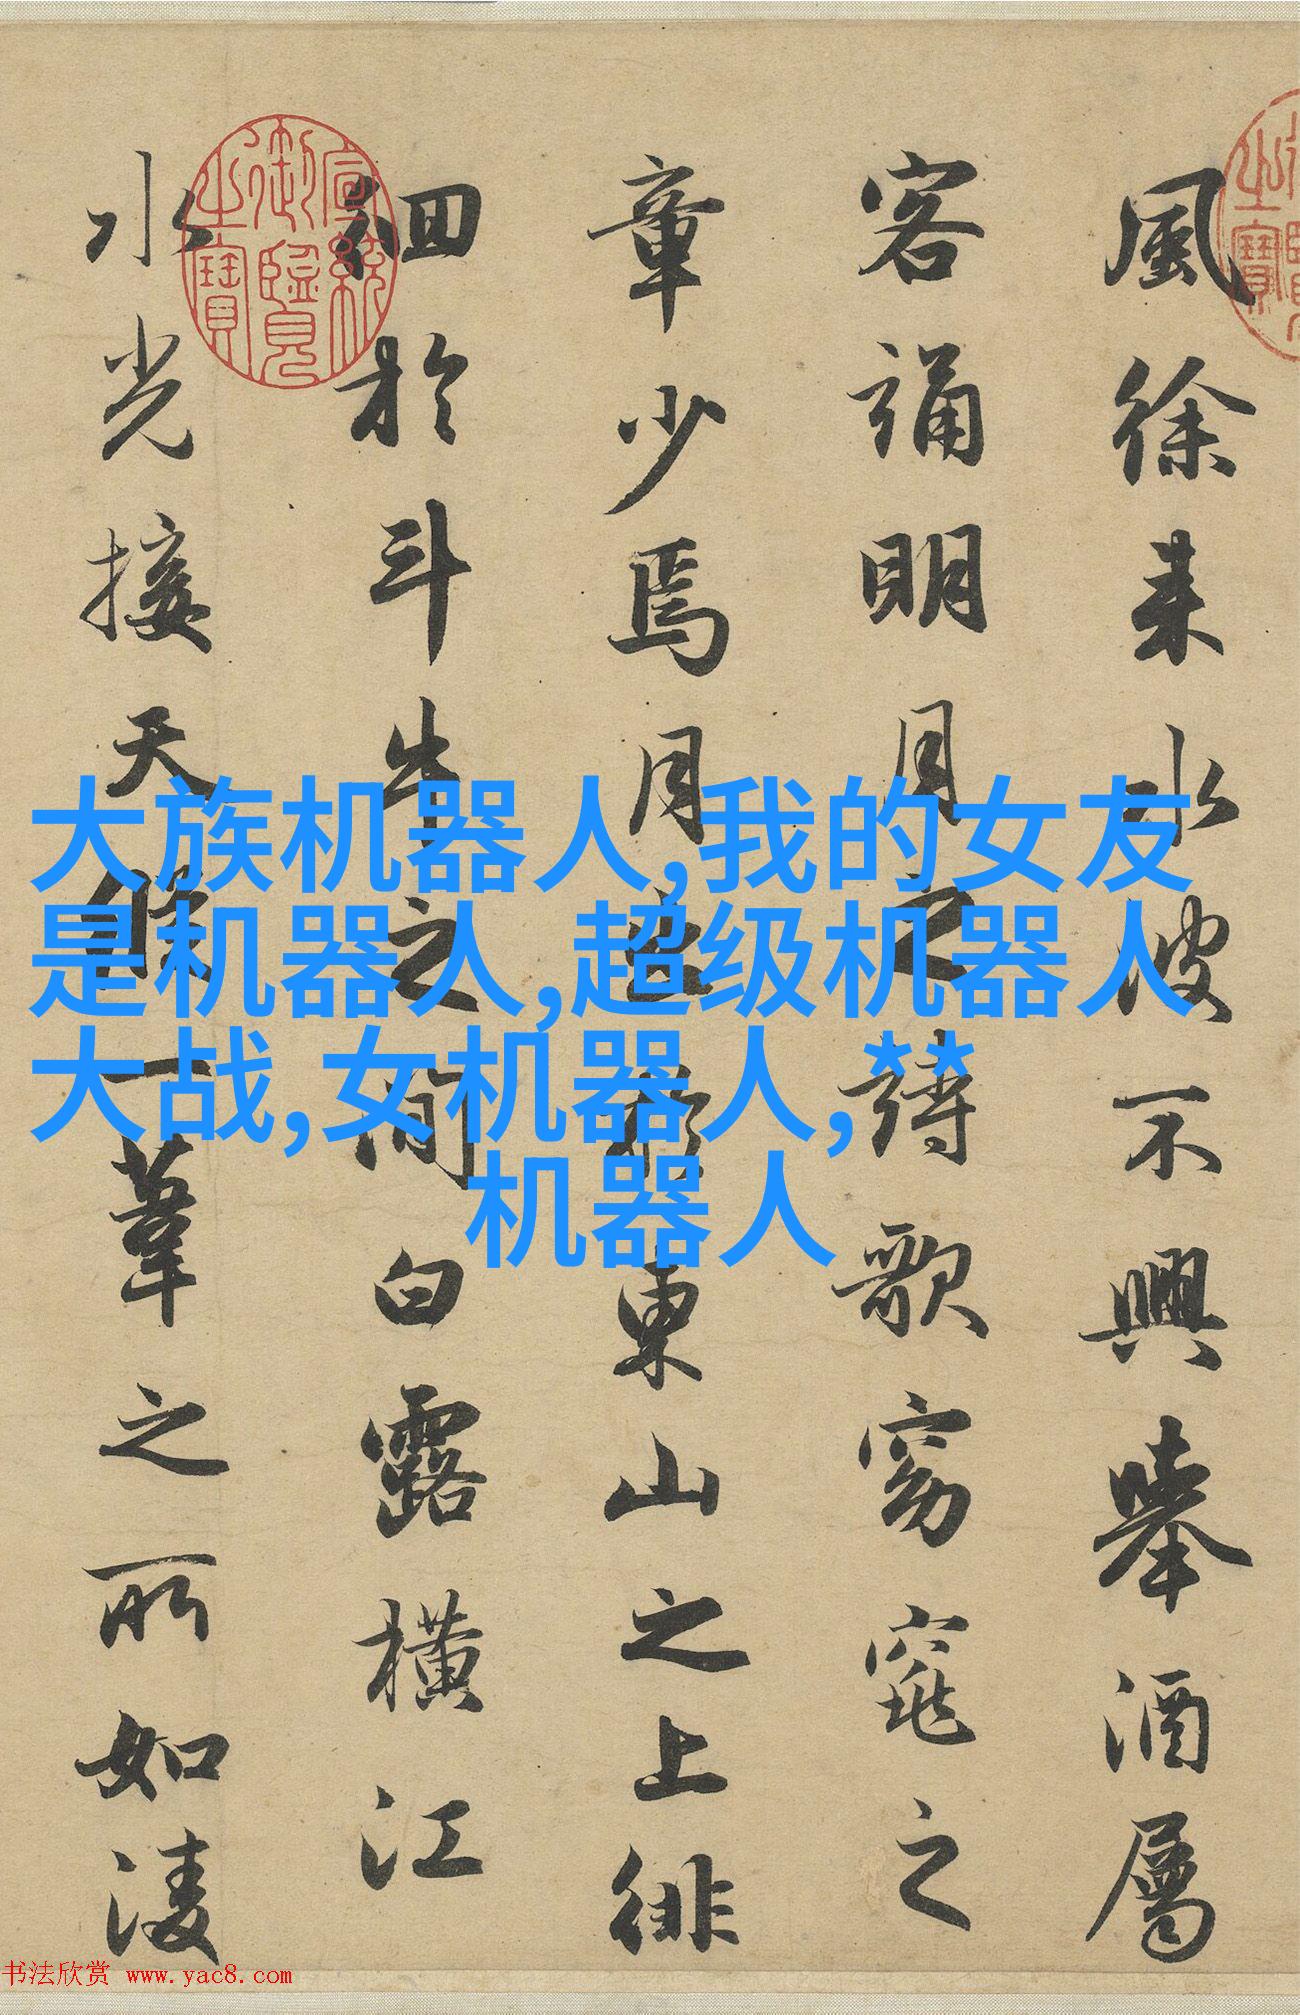 風徐来水波不興舉酒屬
客誦明月之詩歌窈窕之
章少焉月出於東山之上徘
徊於斗牛之間白露橫江
水光接天縱一葦之所如淩
宣統御覽之寶
大族机器人,我的女友
是机器人,超级机器人
大战,女机器人,**
机器人
书法欣赏 www.yac8.com